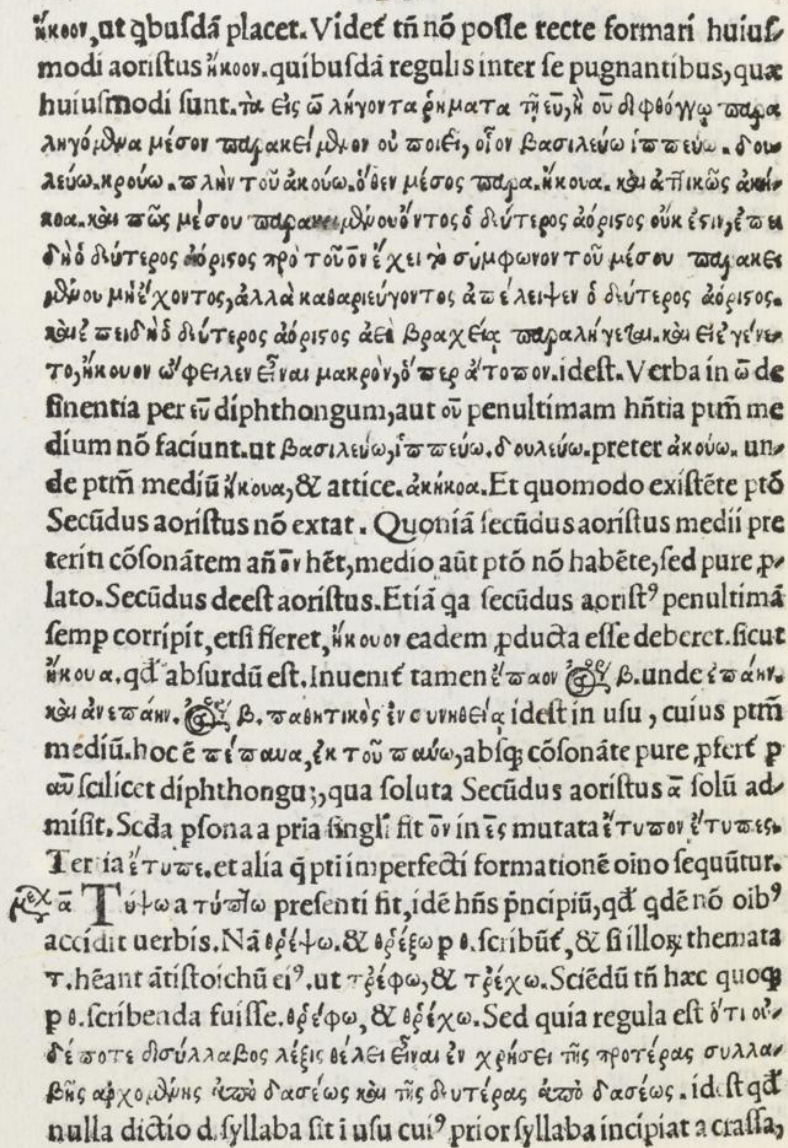 ἤκοον, ut qbusdā placet. Videt᷑ tñ nō posse recte formari huius-
modi aoristus ἤκοον. quibusdā regulis inter se pugnantibus, quæ
huiusmodi sunt. τὰ εἰς ω̄ λήγοντα ῥήματα τῇ ευ, ἢ ου διφθόγγῳ παρα
ληγόμενα μέσον παρακείμενον οὐ ποιεῖ, οἷον βασιλεύω ἱππεύω. δου-
λεύω. κρούω. πλὴν τοῦ ἀκούω. ὅθεν μέσος παρα. ἤκουα. καὶ ἀττικῶς ἀκή-
κοα. καὶ πῶς μέσου παρακειμένου ὄντος ὁ δεύτερος ἀόριστος οὐκ ἔστιν, ἐπει
δὴ ὁ δεύτερος ἀόριστος πρὸ τοῦ ον ἔχει τὸ σύμφωνον τοῦ μέσου παρακει
μένου μὴ ἔχοντος, ἀλλὰ καθαριεύγοντος ἀπέλειψεν ὁ δεύτερος ἀόριστος.
καὶ ἐπειδὴ ὁ δεύτερος ἀόριστος ἀεὶ βραχείᾳ παραλήγεται. καὶ εἰ ἐγένε-
το, ἤκουον ὤφειλεν εἶναι μακρὸν, ὅπερ ἄτοπον. idest. Verba in ω̄ de
sinentia per ευ diphthongum, aut ου penultimam hñtia ptm̄ me
dium nō faciunt. ut βασιλεύω, ἱππεύω. δουλεύω. preter ἀκούω. un-
de ptm̄ mediū ἤκουα, & attice. ἀκήκοα. Et quomodo existēte ptō
Secūdus aoristus nō extat. Quoniā secūdus aoristus medii pre
teriti cōsonātem añ ον hēt, medio aūt ptō nō habēte, sed pure ꝓ-
lato. Secūdus deest aoristus. Etiā qa secūdus aoristꝰ penultimā
semp corripit, etsi fieret, ἤκουον eadem ꝓducta esse deberet. sicut
ἤκουα. qđ absurdū est. Inuenit᷑ tamen ἔπαον ἀόρ β. unde ἐπάην.
καὶ ἀνεπάην. ἀόρ β. παθητικὸς ἐν συνηθείᾳ idest in usu, cuius ptm̄
mediū. hoc ē πέπαυα, ἐκ τοῦ παύω, absqꝫ cōsonāte pure ꝓfert᷑ p
αυ scilicet diphthongū, qua soluta Secūdus aoristus ᾱ solū ad-
misit. Scđa psona a pria singl'i fit ον in ες mutata ἔτυπον ἔτυπες.
Tertia ἔτυπε. et alia q̄ pti imperfecti formationē oino sequūtur.
μελ ᾱ Τύψω a τύπτω presenti fit, idē hñs pr̄ncipiū, qđ qdē nō oibꝰ
accidit uerbis. Nā θρέψω. & θρέξω p θ. scribūt᷑, & si illoꝝ themata
τ. hēant ātistoichū eiꝰ. ut τρέφω, & τρέχω. Sciēdū tñ hæc quoqꝫ
p θ. scribenda fuisse. θρέφω, & θρέχω. Sed quia regula est ὅτι οὐ-
δέποτε δισύλλαβος λέξις θέλει εἶναι ἐν χρήσει τῆς προτέρας συλλα-
βῆς ἀρχομένης ἀπὸ δασέως καὶ τῆς δευτέρας ἀπὸ δασέως. idest qđ
nulla dictio disyllaba sit i usu cuiꝰ prior syllaba incipiat a crassa,